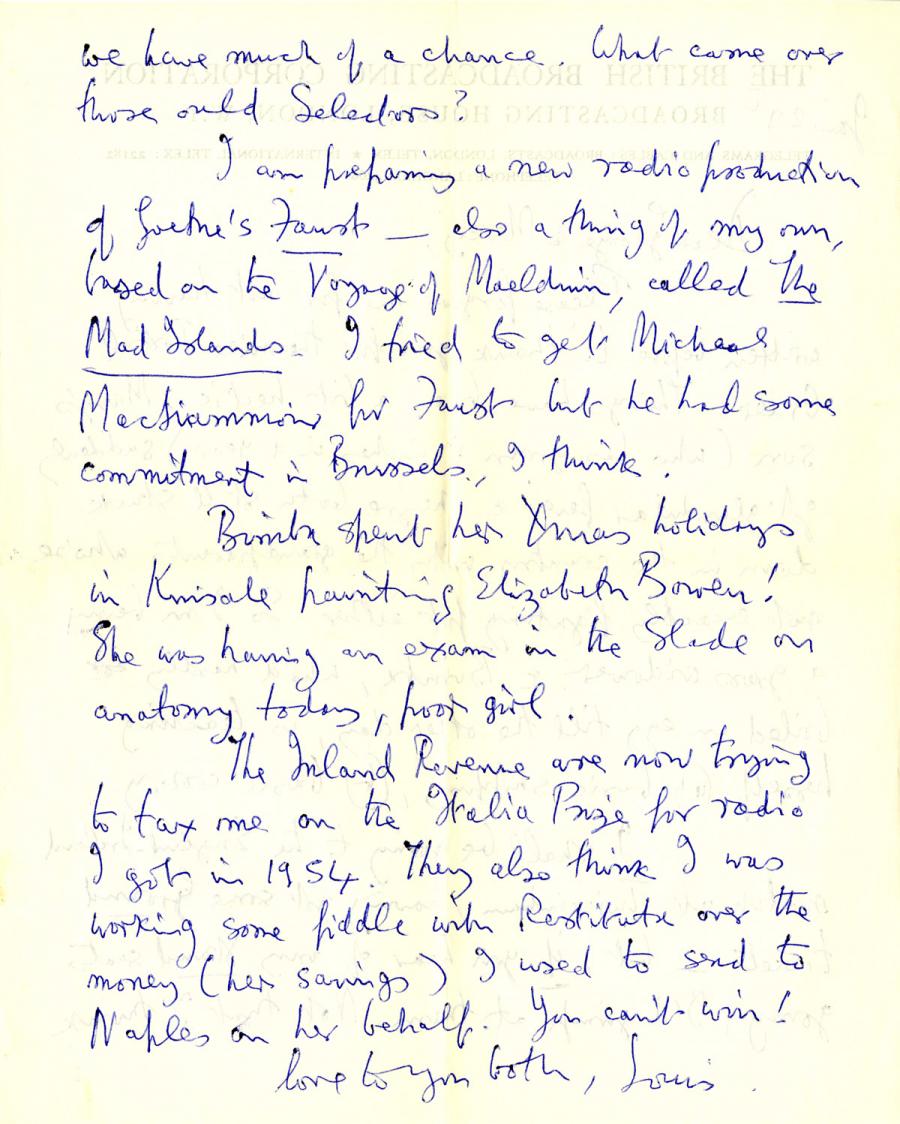 we have much of a chance. What came over
those ould Selectors?
I am preparing a new radio production
of Goethe's Faust — also a thing of my own,
based on the Voyage of Maelduin, called The
Mad Islands. I tried to get Micheal
MacLiammoir for Faust but he had some
commitment in Brussels, I think.
Bimba spent her Xmas holidays
in Kinsale painting Elizabeth Bowen!
She was having an exam in the Slade on
anatomy today, poor girl.
The Inland Revenue are now trying
to tax me on the Italia Prize for radio
I got in 1954. They also think I was
working some fiddle with Restituta over the
money (her savings) I used to send to
Naples on her behalf. You can't win!
love to you both, Louis.
THE BRITISH BROADCASTING CORPORATION
BROADCASTING HOUSE, LONDON, W.1